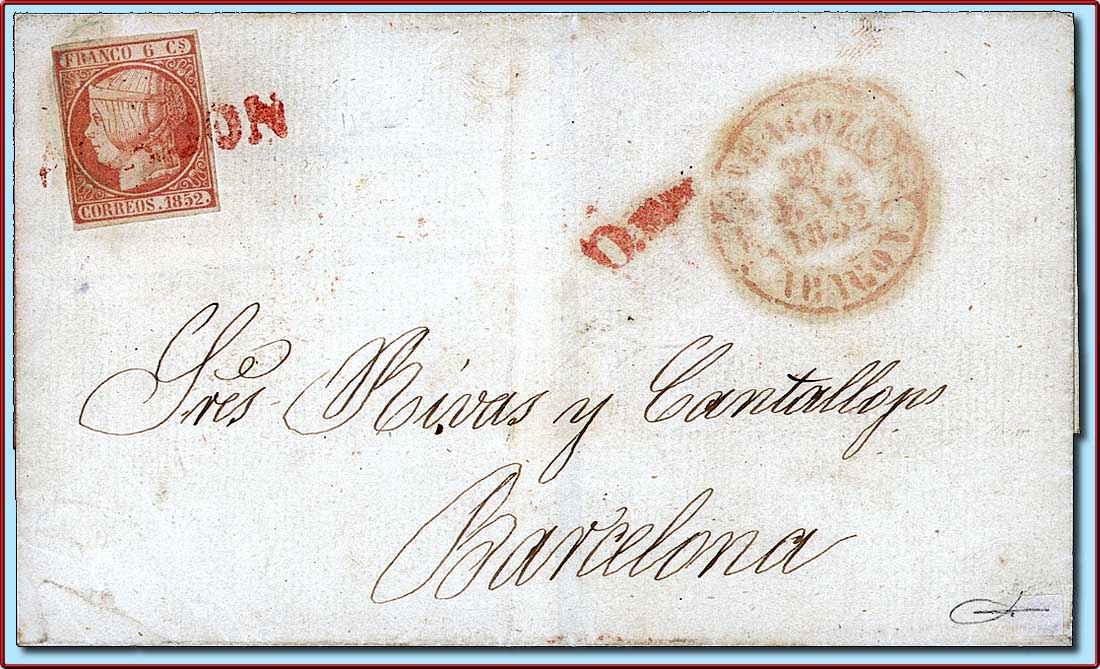 FRANCO 6 Cs
CORREOS. 1852.
ZARAGOZA
28
1852
ARAGON
Sres Rivas y Cantallops
Barcelona